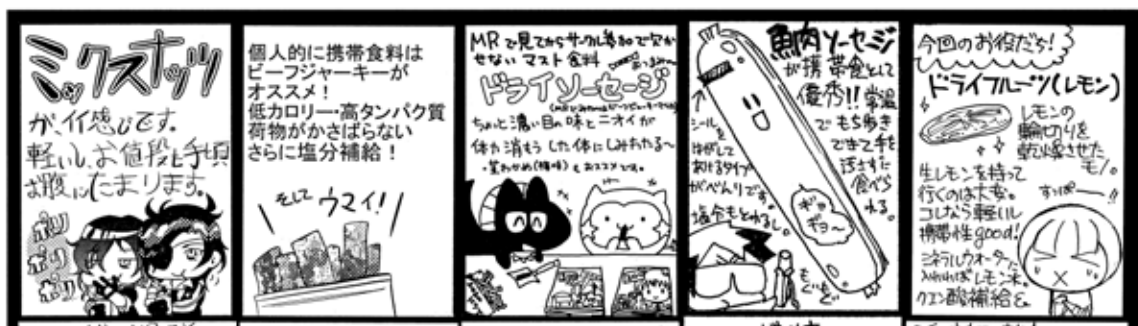 ミックスナッツ
が、イイ感じです。
軽いし、お値段も手頃
お腹にたまります。
ポリ
ポリ
ポリ
ポリ
個人的に携帯食料は
ビーフジャーキーが
オススメ！
低カロリー・高タンパク質
荷物がかさばらない
さらに塩分補給！
そして ウマイ!
MRで見てからサークル参加で欠か
せない マスト食料
ドライソーセージ
ちょっと濃い目の味とニオイが
体力消もうした体にしみわたる〜
・茎わかめ(梅味)もおススメです。
魚肉ソーセージ
が携帯食として
優秀!! 常温
でもち歩き
できて手を
汚さずに
食べら
れる。
シールを
はがして
あけるタイプ
がべんりです。
塩分もとれるし。
ギョ
ギョ〜
もぐもぐ
今回のお役だち!
ドライフルーツ(レモン)
レモンの
輪切りを
乾燥させた
モノ。
生レモンを持って
行くのは大変。
コレなら軽いし
携帯性good!
ミネラルウォーターに
入れればレモン水。
クエン酸補給を。
すっぱー!!